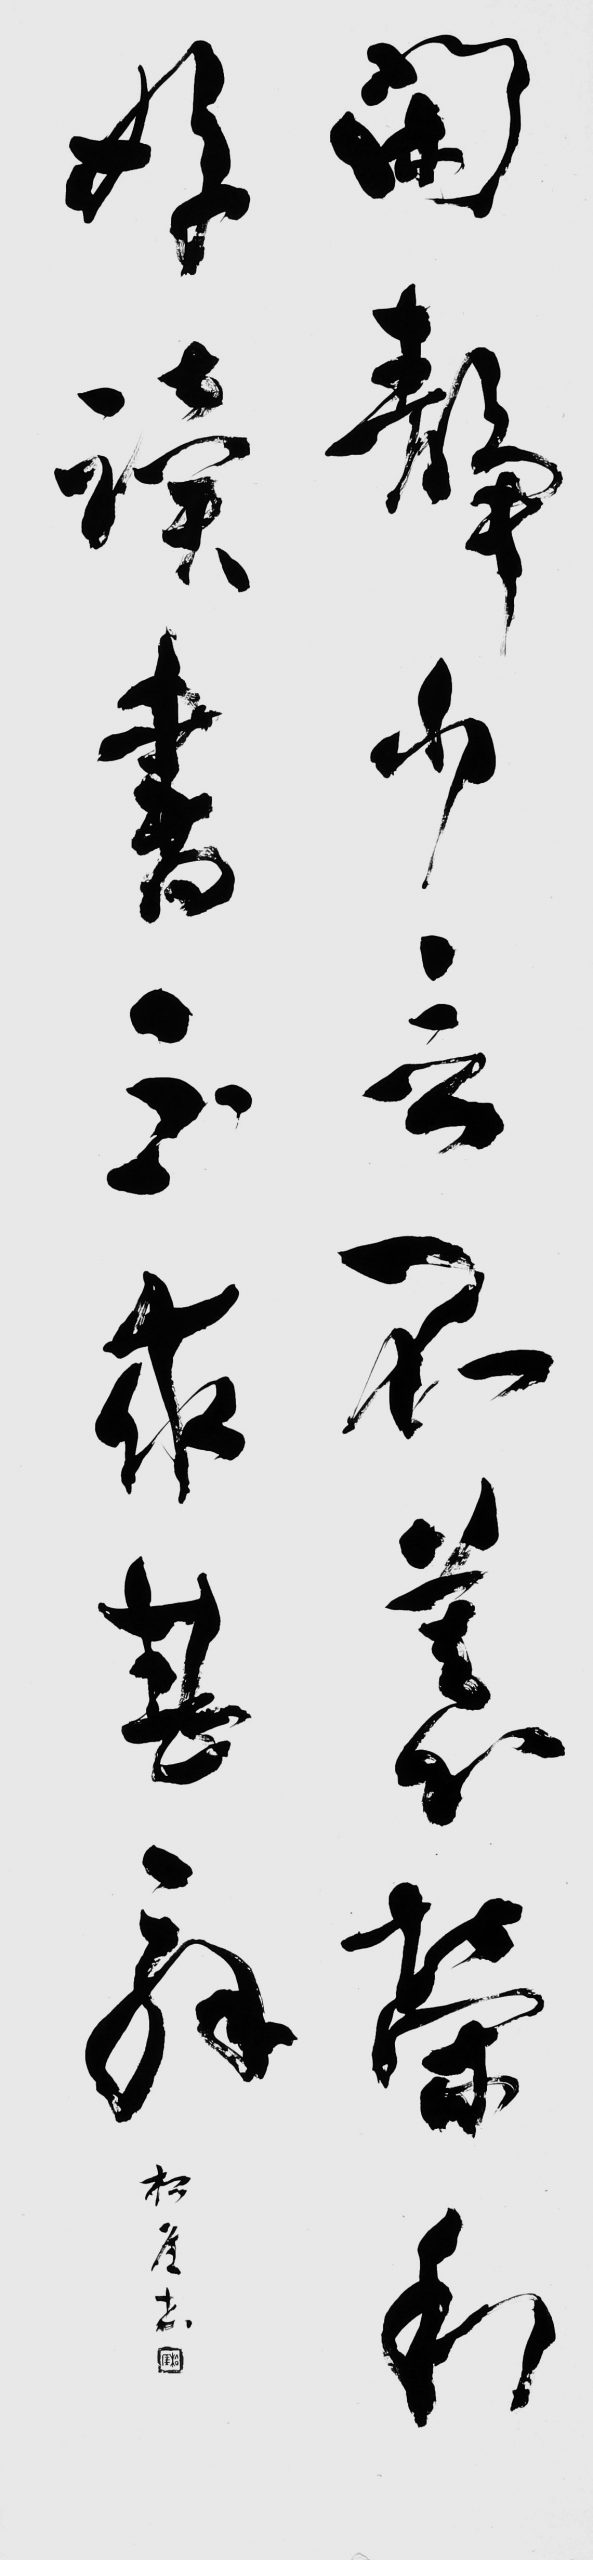 閑静少言不慕榮利
好讀書不求甚解
松崖書